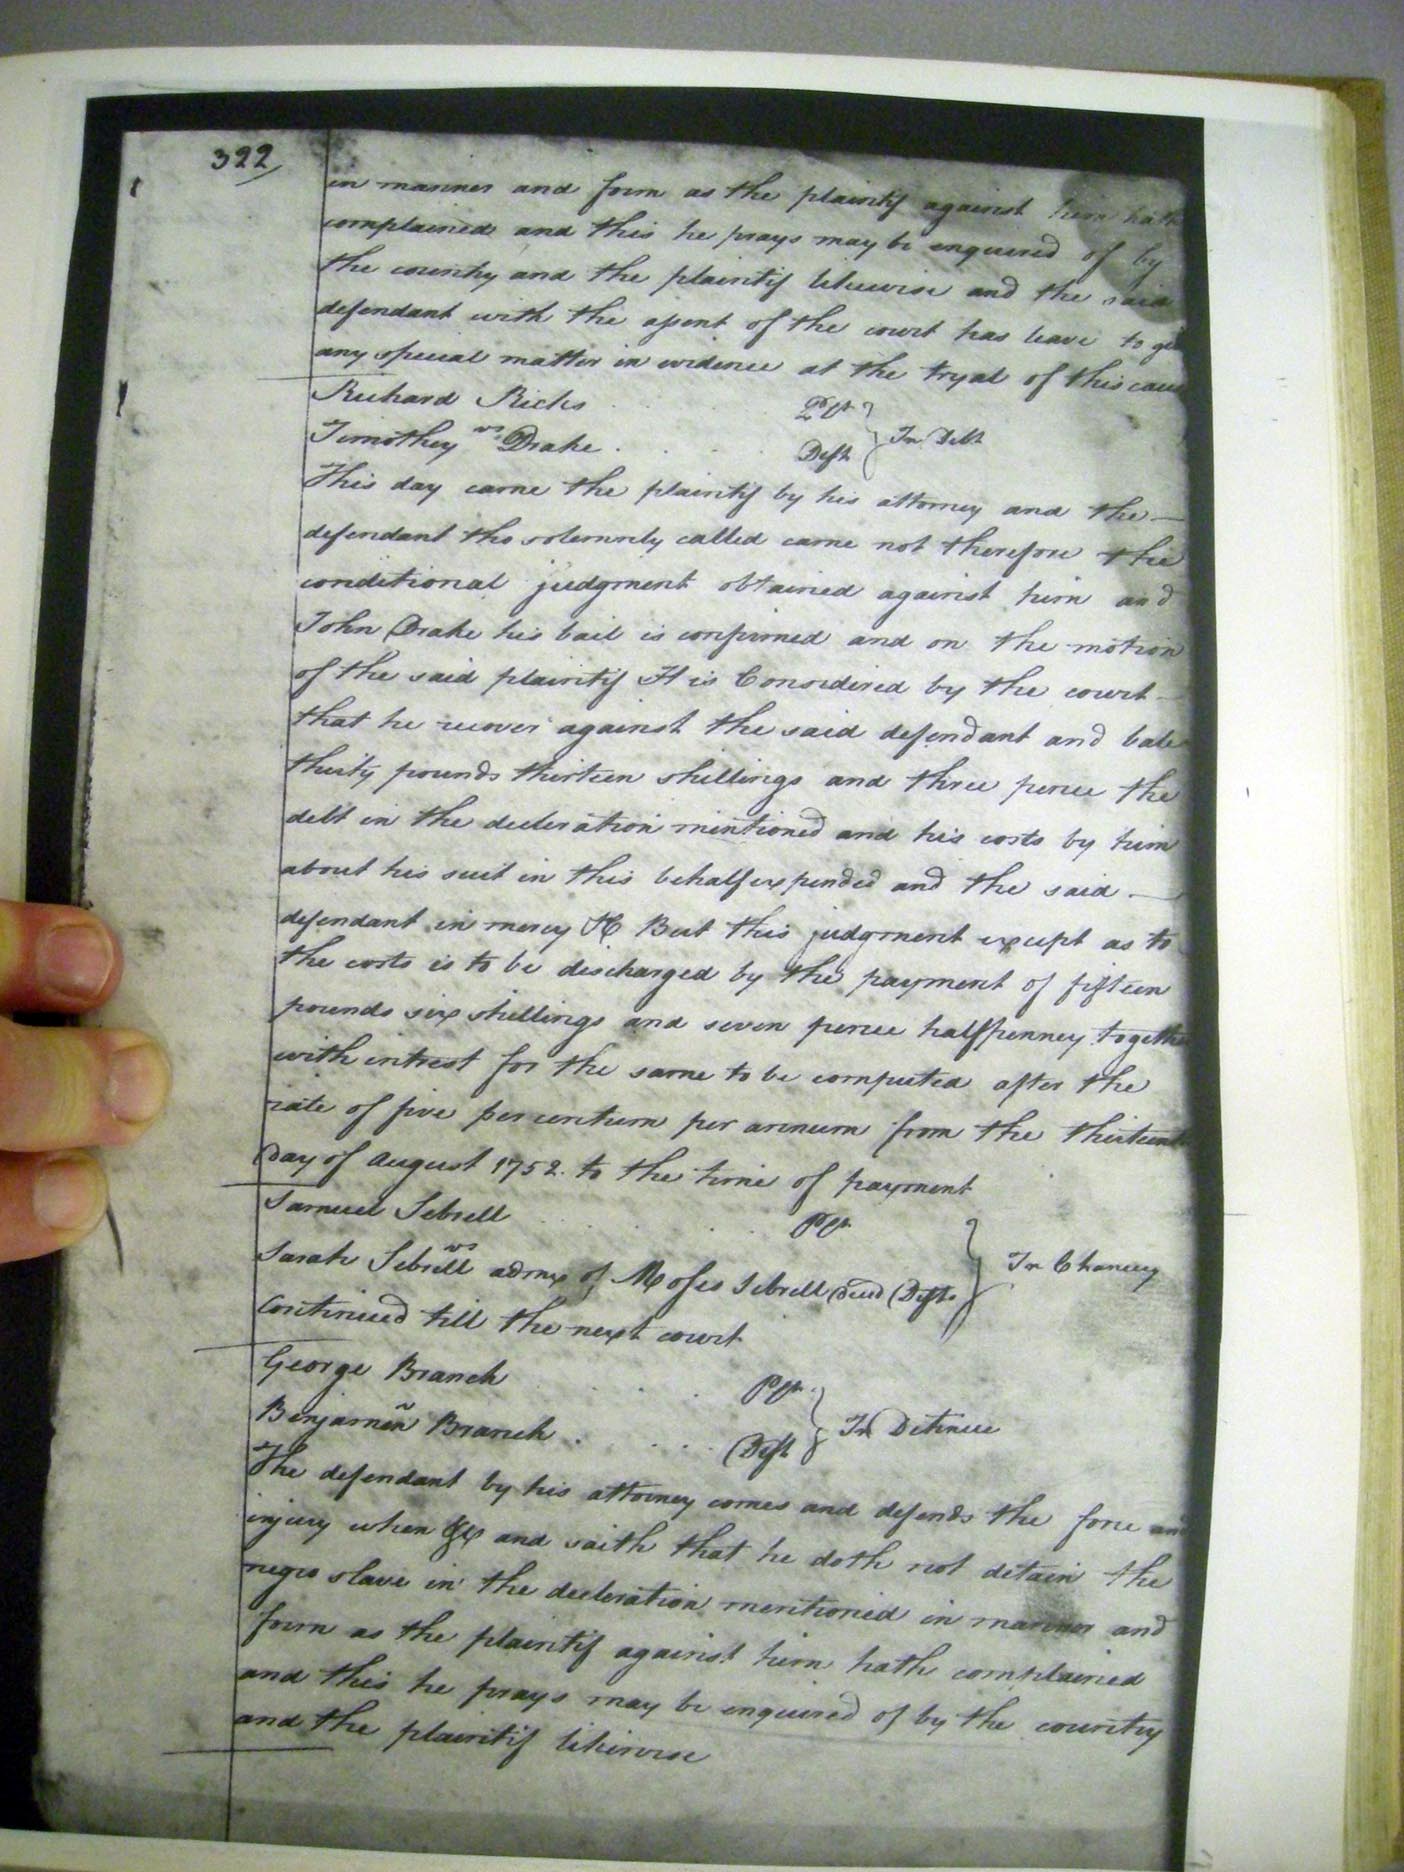 322
in manner and form as the plaintif against him hath
complained and this he prays may be enquired of by
the country and the plaintif likewise and the said
defendant with the assent of the court has leave to
any special matter in evidence at the tryal of this
Richard Ricks Plt
vs
Timothey Drake Deft In Debt
This day came the plaintif by his attorney and the
defendant tho solemnly called came not therefore the
conditional judgment obtained against him and
John Drake his bail is confirmed and on the motion
of the said plaintif It is Considered by the court
that he recover against the said defendant and bale
thirty pounds thirteen shillings and three pence the
debt in the decleration mentioned and his costs by him
about his suit in this behalf expended and the said
defendant in mercy &c But this judgment except as to
the costs is to be discharged by the payment of fifteen
pounds six shillings and seven pence halfpenney together
with intrest for the same to be computed after the
rate of five per centum per annum from the thirteenth
Day of August 1752. to the time of payment
Samuel Sebrell Plt
vs
Sarah Sebrell admx of Moses Sebrell Decd Defts In Chancery
Continued till the next court
George Branch Plt
vs
Benjamin Branch Deft In Detinue
The defendant by his attorney comes and defends the force and
injury when &c and saith that he doth not detain the
negro slave in the decleration mentioned in manner and
form as the plaintif against him hath complained
and this he prays may be enquired of by the country
and the plaintif likewise